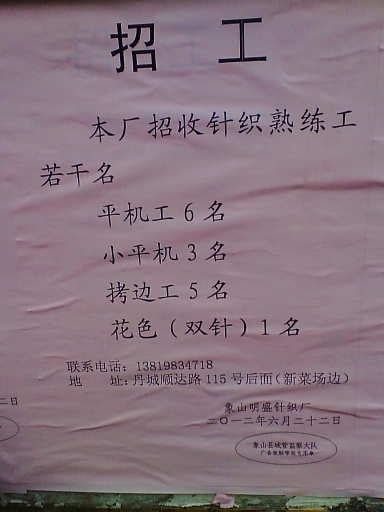 招 工
本厂招收针织熟练工
若干名
平机工 6 名
小平机 3 名
拷边工 5 名
花色（双针）1 名
联系电话：13819834718
地 址：丹城顺达路 115 号后面（新菜场边）
象山明盛针织厂
二〇一二年六月二十二日
二日
象山县城管监察大队